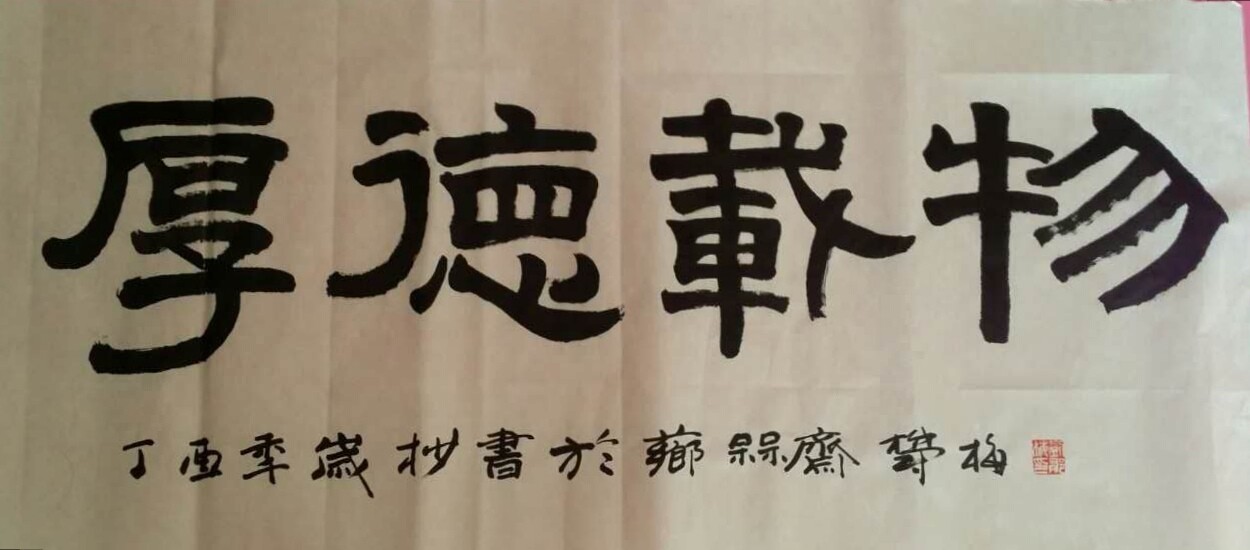 厚德載物
丁酉季歲杪書於薌槑齋 梅